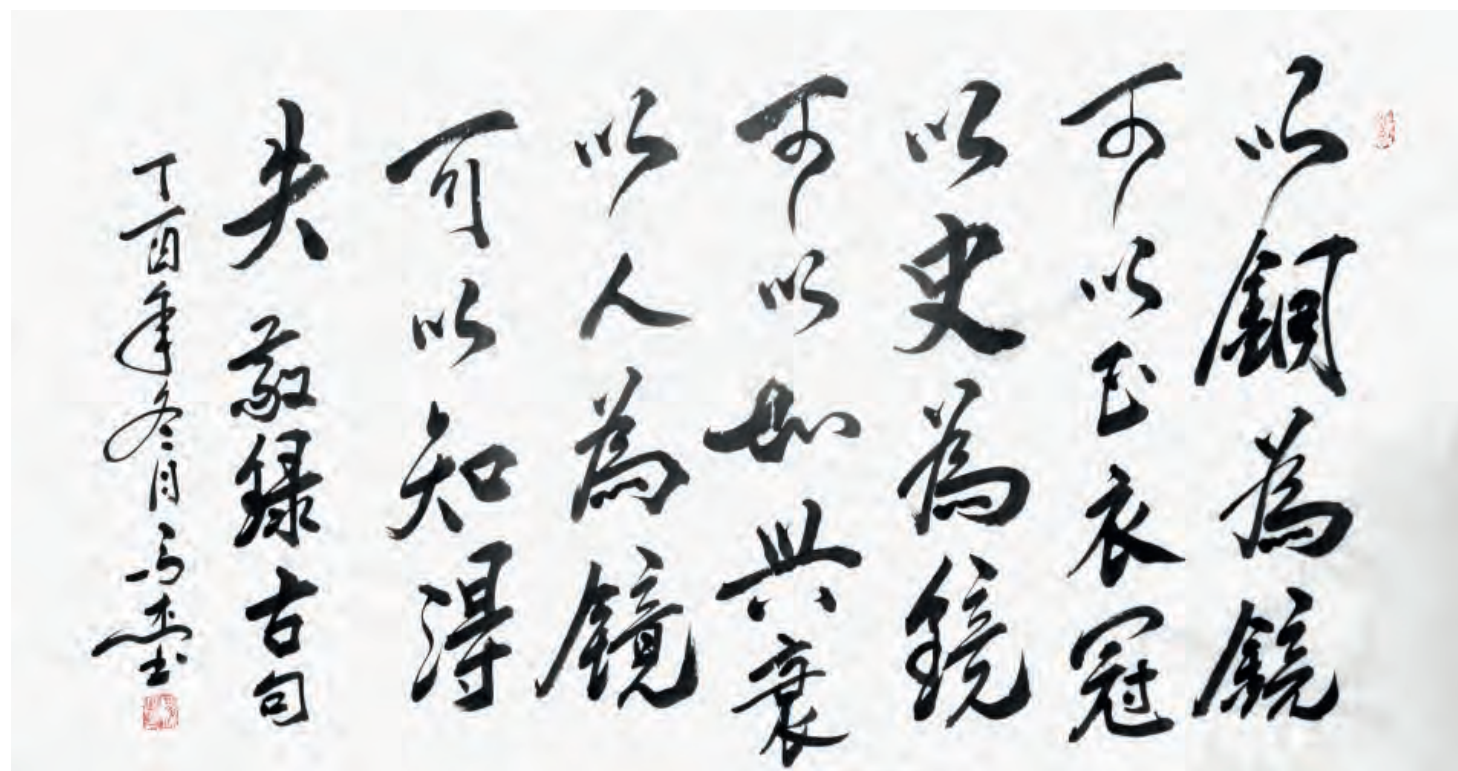 以銅為鏡
可以正衣冠
以史為鏡
可以知興衰
以人為鏡
可以知得
失 敬録古句
丁酉年冬月馬杰書